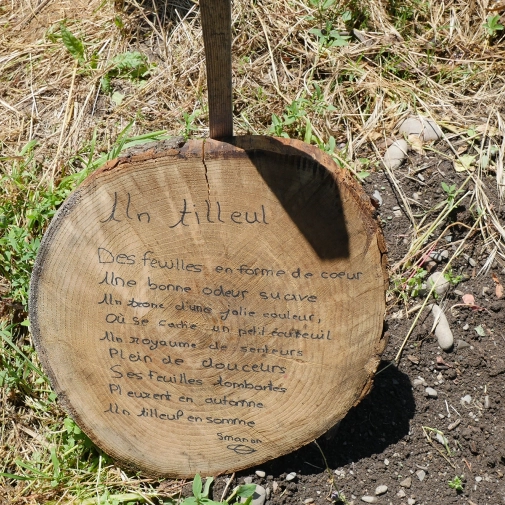 Un tilleul
Des feuilles en forme de coeur
Une bonne odeur suave
Un tronc d'une jolie couleur,
Où se cache un petit écureuil
Un royaume de senteurs
Plein de douceurs
Ses feuilles tombantes
Pleurent en automne
Un tilleul en somme